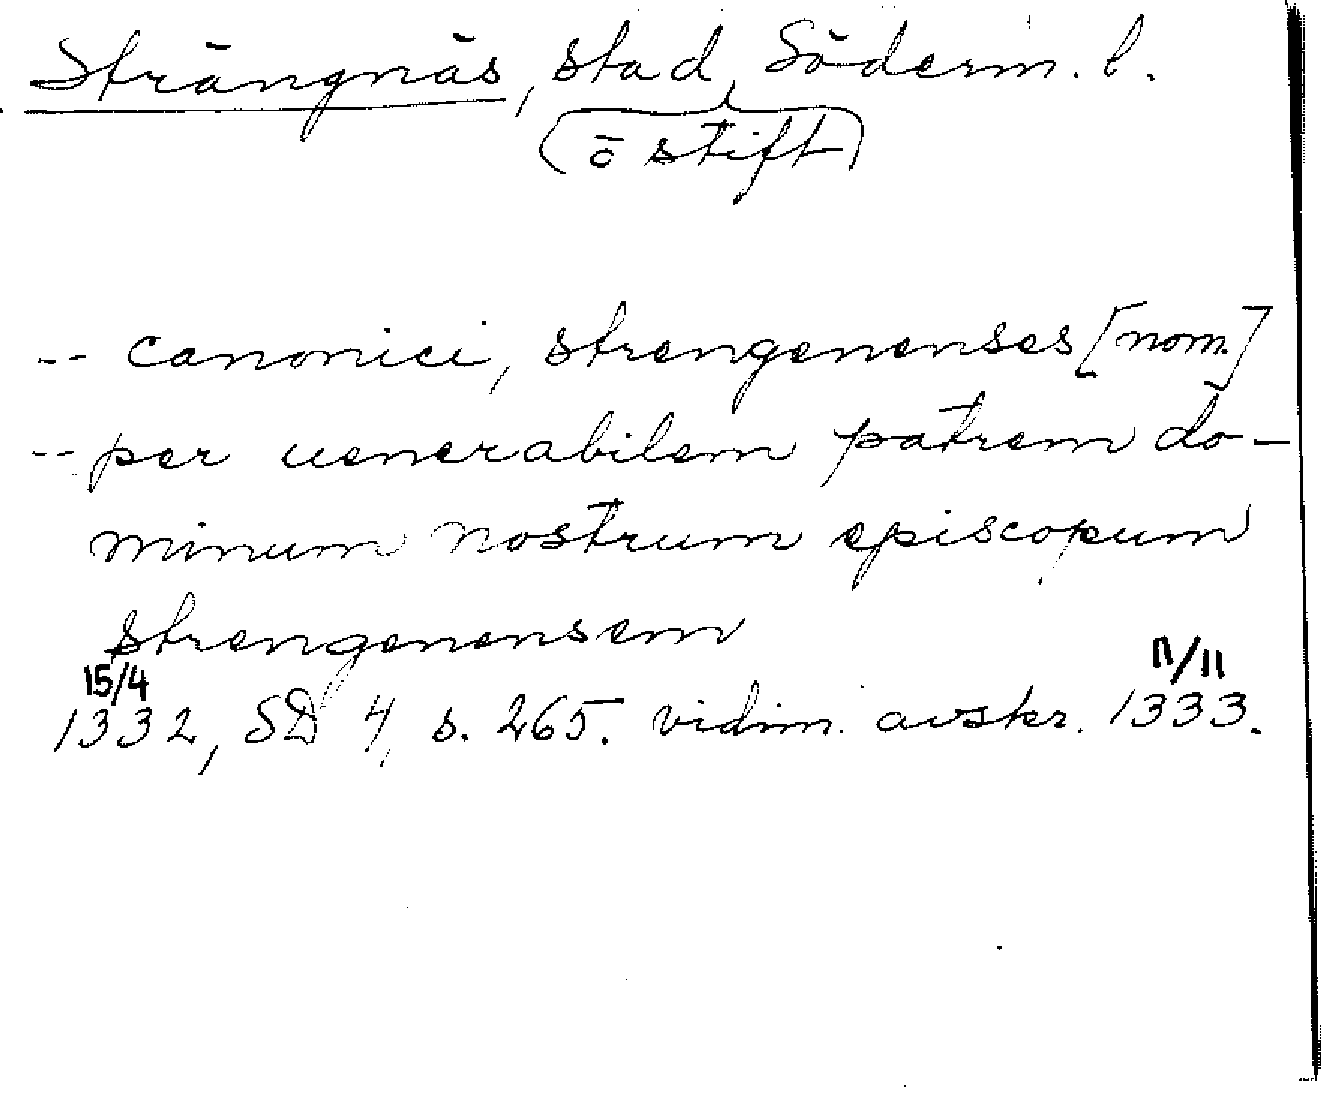 Strängnäs, stad, Söderm. l.
(ö stift)
-- canonici, strengenenses [nom.]
-- per uenerabilem patrem do-
minum nostrum episcopum
strengenensem
15/4 11/11
1332, SD 4, s. 265. vidim. avskr. 1333.